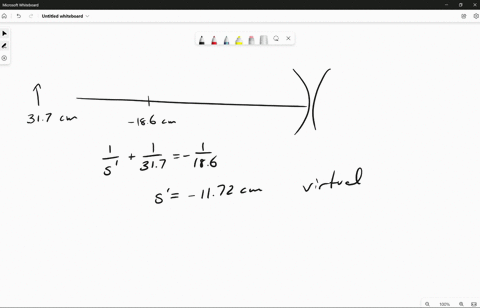 Microsoft Whiteboard
Untitled whiteboard
31.7 cm
-18.6 cm
1/s' + 1/31.7 = -1/18.6
s' = -11.72 cm
virtual
100%